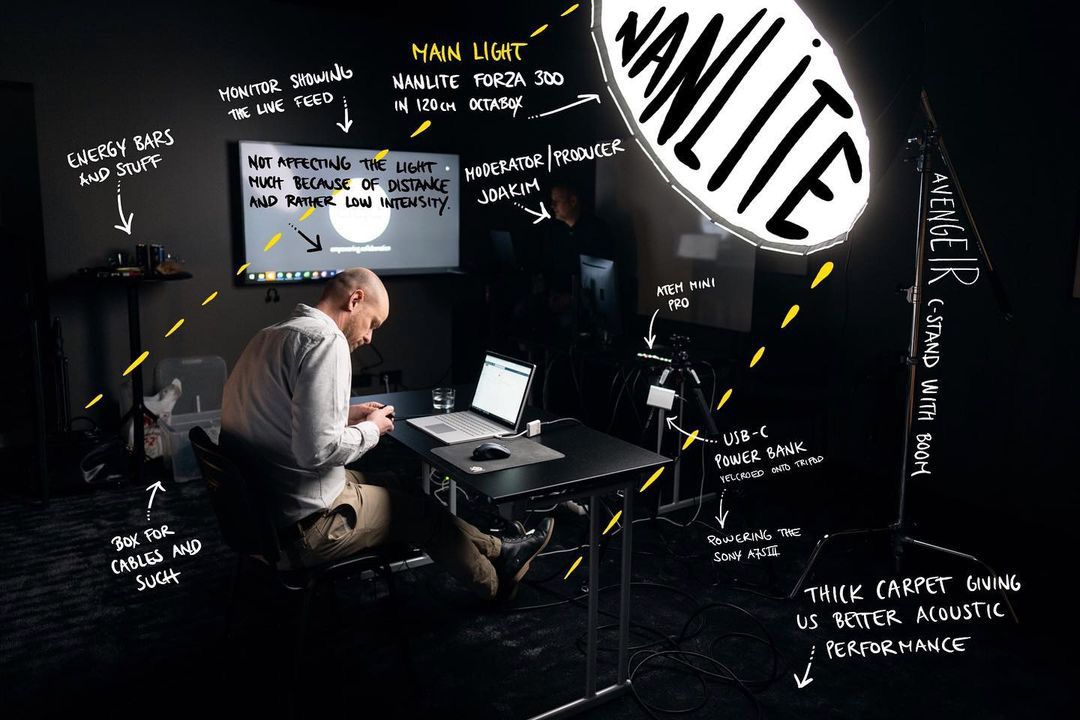 MAIN LIGHT
NANLITE FORZA 300
IN 120CM OCTABOX
NANLITE
MONITOR SHOWING
THE LIVE FEED
ENERGY BARS
AND STUFF
NOT AFFECTING THE LIGHT
MUCH BECAUSE OF DISTANCE
AND RATHER LOW INTENSITY.
MODERATOR/PRODUCER
JOAKIM
AVENGER C-STAND WITH BOOM
ATEM MINI
PRO
USB-C
POWER BANK
VELCROED ONTO TRIPOD
POWERING THE
SONY A7SIII
BOX FOR
CABLES AND
SUCH
THICK CARPET GIVING
US BETTER ACOUSTIC
PERFORMANCE